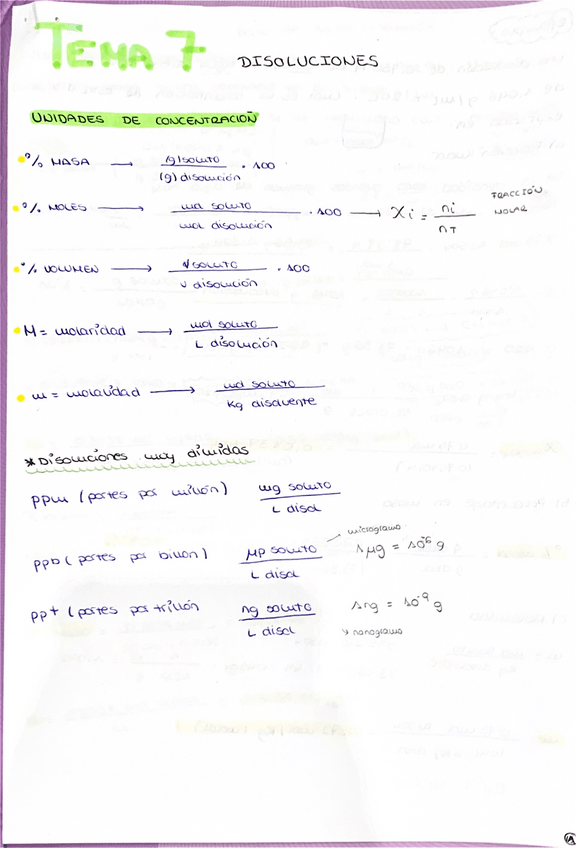 TEMA 7 DISOLUCIONES
UNIDADES DE CONCENTRACIÓN
% MASA → (g) soluto / (g) disolución · 100
% MOLES → mol soluto / mol disolución · 100 → Xi = ni / nT FRACCIÓN MOLAR
% VOLUMEN → V soluto / V disolución · 100
M = molaridad → mol soluto / L disolución
m = molalidad → mol soluto / Kg disolvente
*Disoluciones muy diluidas
ppm (partes por millón) mg soluto / L disol
ppb (partes por billón) μg soluto / L disol → microgramo 1 μg = 10⁻⁶ g
ppt (partes por trillón ng soluto / L disol 1 ng = 10⁻⁹ g
↘ nanogramo